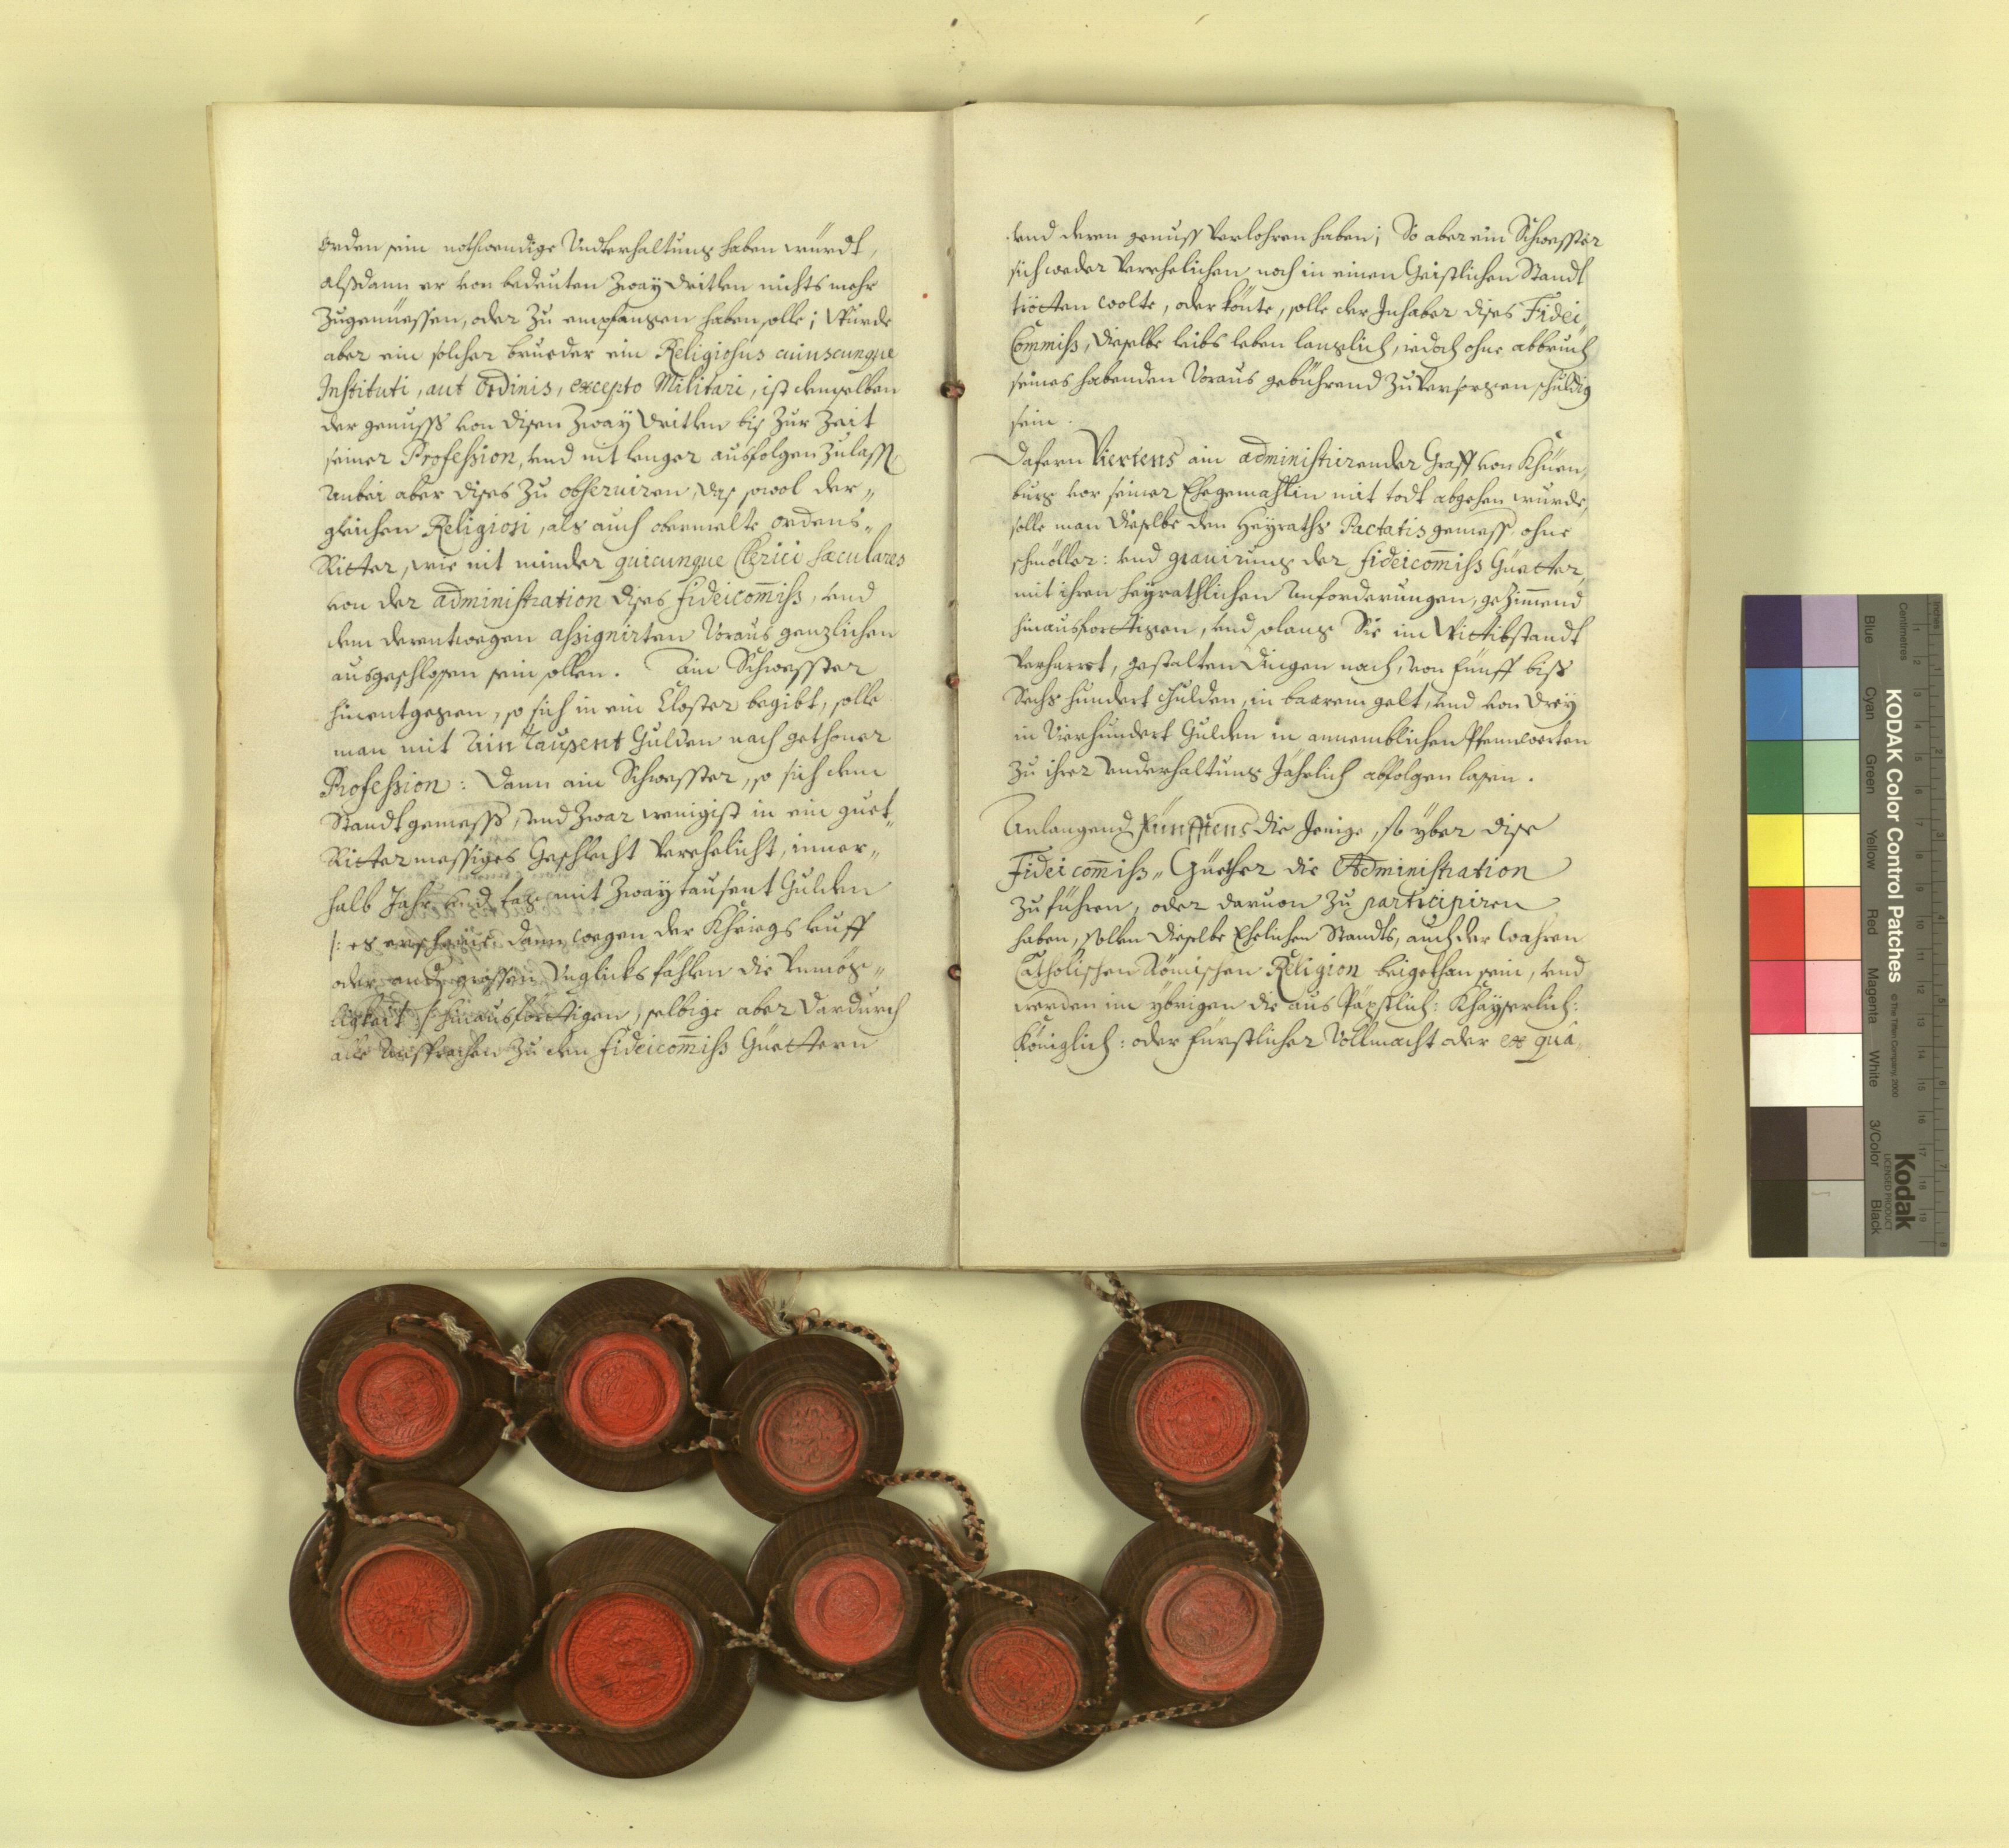 Orden sein nothwendige Undterhaltung haben würdt,
alßdann er von bedeuten Zway dritlen nichts mehr
Zugenüessen, oder Zu empfangen haben solle; Wurde
aber ein solcher brueder ein Religiosus cuiuscunque
Instituti, aut Ordinis, excepto Militari, ist demselben
der genuss von disen Zway dritlen bis Zur Zeit
seiner Profession, und nit lenger ausfolgen Zulassen
Anbei aber dises Zu obseruiren, das sowol der„
gleichen Religiosi, als auch obermelte ordens„
Ritter, wie nit minder quicunque Clerici sæculares
von der administration dises fideicom̄iss, und
dem derentwegen assignirten Voraus genzlichen
ausgeschlossen sein sollen. Ain Schwesster
hinentgegen, so sich in ein Closter begibt, solle
man mit Ain Tausent Gulden nach gethoner
Profession: Dann ain Schwesster, so sich dem
Standt gemess, und Zwar wenigist in ein guet„
Rittermessiges Geschlecht Verehelicht, inner„
halb Jahr und tag mit Zway tausent Gulden
/: es erscheine dann wegen der Khriegs leuff
oder and. grossen Unglicks fählen die Unmög„
ligkeit :/ hinausförttigen, selbige aber dardurch
alle Ansprachen Zu den fideicom̄iss Güettern
und deren genuss Verlohren haben; So aber ein Schwesster
sich weder Verehelichen noch in einen Geistlichen Standt
trötten wolte, oder könte, solle der Inhaber dises Fidei„
Commiss, dieselbe leibs leben lenglich, iedoch ohne abbruch
seines habenden Voraus gebührend Zu Versorgen schuldig
sein.
Dafern Viertens ain administrirender Graff von Khüen„
burg vor seiner Ehegemahlin mit todt abgehen wurde,
solle man dieselbe den Heyraths Pactatis gemess ohne
schmöller: und grauirung der fideicom̄iss Güetter,
mit ihren heyrathlichen Anforderungen, geZimmend
hinausförttigen, und solang Sie im Wittibstandt
Verharret, gestalten dingen nach, von fünff biss
Sechs hundert Gulden, in baarem gelt, und von drey
in Vierhundert Gulden in annemblichen Pfenwerten
Zu ihrer Underhaltung Jährlich abfolgen lassen.
Anlangend Fünfftens die Jenige, so yber dise
Fideicom̄iss„ Güether die Administration
Zuführen, oder daruon Zu participiren
haben, sollen dieselbe Ehelichen Standts, auch der wahren
Catholischen Römischen Religion beigethan sein, und
werden im ybrigen die aus Päpstlich: Khayserlich:
Königlich: oder fürstlicher Vollmacht oder ex qua„
KODAK Color Control Patches
© The Tiffen Company, 2000
Kodak
LICENSED PRODUCT
Centimetres
Inches
Blue
Cyan
Green
Yellow
Red
Magenta
White
3/Color
Black